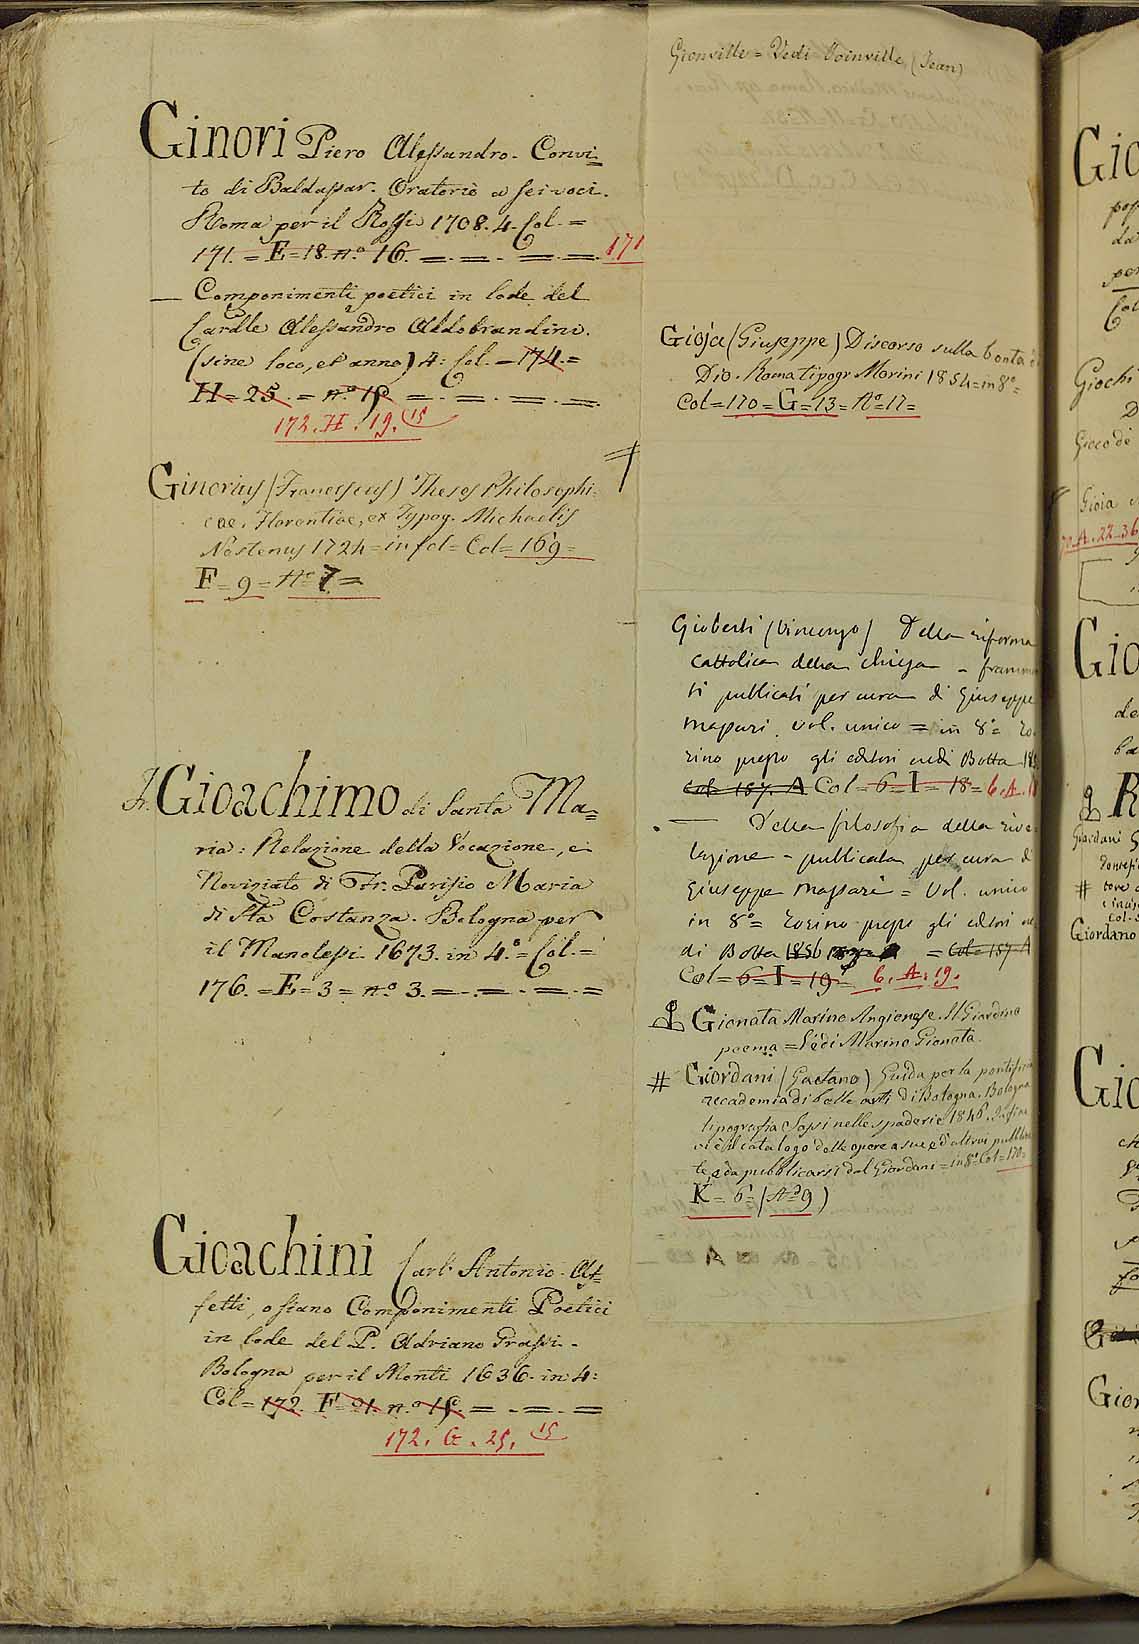 Ginori Piero Alessandro. Convi=
to di Baldassar. Oratorio a sei voci.
Roma per il Rossi 1708. 4. Col. =
171. = E = 18. n.º 16. =.=.=.=. 171
— Componimenti poetici in lode del
Cardle Alessandro Aldobrandini.
(sine loco, et anno) 4: Col. = 174. =
H = 25. = n.º 18 =.=.=.=
172. H. 19. 15
Ginorius (Franciscus) Theses Philosophi=
cae. Florentiae, ex Typog. Michaelis
Nestenus 1724 = in fol = Col = 169 =
F = 9 = Nº 7 =
Gioachimo di Santa Ma=
ria: Relazione della Vocazione, e
Noviziato di Fr. Parisio Maria
di Sta Costanza. Bologna per
il Manolessi. 1673. in 4.º = Col. =
176. = E = 3 = n.º 3. =.=.=.=
Gioachini Carl' Antonio. Af=
fetti, o siano Componimenti Poetici
in lode del P. Adriano Grassi.
Bologna per il Monti 1636. in 4:
Col = 172. F = 21. n.º 15. =.=.=
172. G. 25. 15
Gionville = Vedi Joinville (Jean)
Gioja (Giuseppe) Discorso sulla bontà di
Dio. Roma tipogr Morini 1854 = in 8º =
Col = 170 = G = 13 = Nº = 17 =
Gioberti (Vincenzo) Della riforma
cattolica della chiesa - framm
ti publicati per cura di Giuseppe
Massari. vol. unico = in 8º = To
rino presso gli editori eredi Botta 185
Col = 187. A Col = 6 = I = 18 = 6. A. 18
— Della filosofia della rive
lazione - publicata per cura di
Giuseppe Massari = Vol. unico
in 8º = Torino presso gli editori ere
di Botta 1856 = Col = 187 A
Col = 6 = I = 19 = 6. A. 19.
Gionata Marino Angionese. Il Giardino
poema = Vedi Marino Gionata.
# Giordani (Gaetano) Guida per la pontificia
accademia di belle arti di Bologna. Bologna
tipografia Sassi nelle spaderie 1846. In fine
vi è il catalogo delle opere a sue ed altrui pubblica
te, e da pubblicarsi dal Giordani = in 8º Col = 170 =
K = 6 = (Nº 9)
Gio
Giochi
Gioco di
Gioia
70. A. 22. 36
Gio
Giordani G
#
Giordano
Gio
Gior